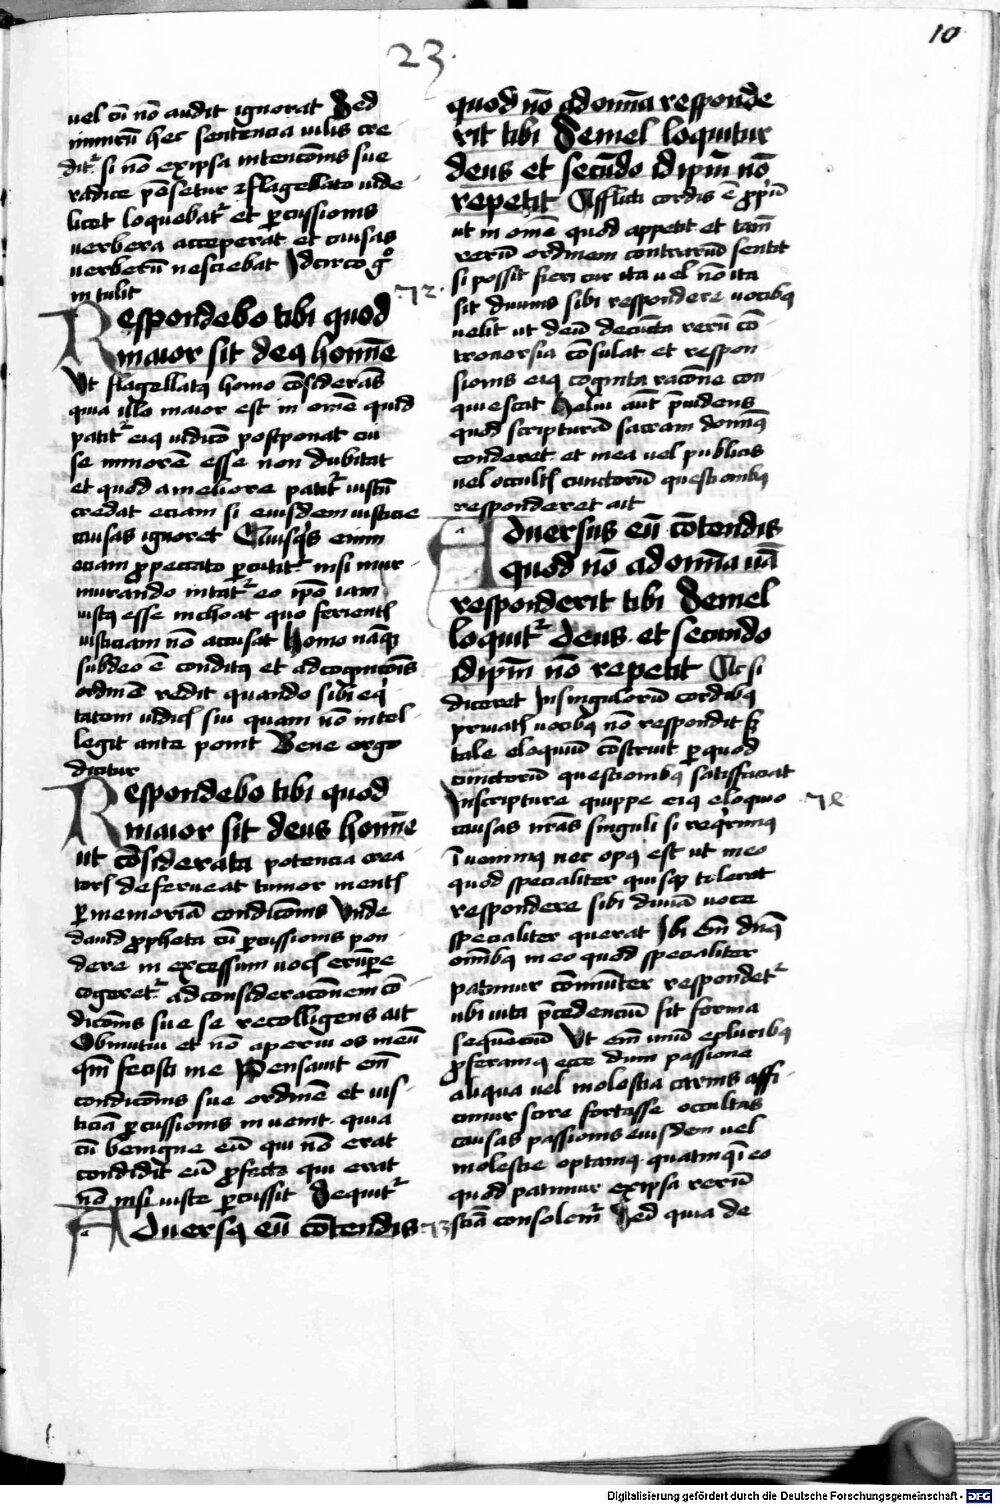 10
23.
vel cū nō audit ignorat Sed
nimirū hec sentencia vilis cre
dit᷑ si nō ex ipsa intencōnis sue
radice pēsetur flagellato vide
licet loquebat᷑ et p̱cussionis
verbera acceperat et causas
verberū nesciebat Idcirco gͦ
intulit
.72.
Respondebo tibi quod
maior sit deꝯ homīe
Ut flagellatꝯ homo cōsiderās
quia illo maior est in om̄e quid
patit᷑ eiꝯ iudicō postponat cui
se minorē esse non dubitat
et quod a meliore patit᷑ iustū
credat eciam si eiusdem iusticie
causas ignoret Quisq̇s enim
eciam ꝓ peccato p̱cutit᷑ nisi mur
murando intat᷑ eo ip̄o iam
iustꝯ esse inchoat quo ferientꝭ
iusticiam nō accusat Homo nāqꝫ
sub deo ē conditꝯ et ad cognicōis
ordinē redit quando sibi eqͥ
tatem iudicꝭ siu quam nō intel
legit ante ponit Bene ergo
dicitur
Respondebo tibi quod
maior sit deus homīe
ut cōsiderata potencia crea
torꝭ deferueat tumor mentꝭ
p̱ memoriā condicōnis Unde
dauid ꝓpheta cū p̱cussionis pon
dere in excessum vocꝭ erūpe
cogeret᷑ ad consideracōnem cō
dicōnis sue se recolligens ait
Obmutui et nō aperui os meū
qm̄ fecisti me Pensauit em̄
condicōnis sue ordinē et ius
ticiā p̱cussionis inuenit quia
cū benigne eū qui nō erat
condidit eū ꝓfecto qui erat
nō nisi iuste p̱cussit Sequit᷑
Aduersꝯ eū cōtendis .73.
quod nō ad om̄ia responde
rit tibi Semel loquitur
deus et secūdo id ip̄m nō
repetit Afflicti cordis ē ꝓpͥū
ut in om̄e quod appetit et tam̄
rerū ordinem contrariū sentit
si possit fieri cur ita vel nō ita
sit diuinis sibi respondere vocibꝯ
velit ut deū decūcta rerū cō
trouersia cōsulat et respon
sionis eiꝯ cognita racōne con
quiescat Heliu aūt p̄uidens
quod scripturā sacram dominꝯ
conderet et in ea vel publicis
vel occultꝭ cunctorū questionibꝯ
responderet ait
Aduersus eū cōtendis
quod nō ad om̄ia vā
responderit tibi Semel
loquit᷑ deus et secundo
id ip̄m nō repetit Ac si
diceret In singulorū cordibꝯ
priuatꝭ vocibꝯ nō respondit sꝫ
tale eloquiū cōstruit p̱ quod
cunctorū questionibꝯ satisfaciat
In scripture quippe eiꝯ eloquio
causas nr̄as singuli si reqͥrimꝯ
īuenimꝯ nec opꝯ est ut in eo
quod specialiter quisqꝫ tolerat
respondere sibi diuinā voce
specialiter querat Ibi em̄ dn̄ꝯ
om̄ibꝯ in eo quod specialiter
patimur cōmuniter respondet᷑
ubi vita p̄cedenciū fit forma
sequēciū Ut em̄ unū e pluribꝯ
ꝓferamꝯ ecce dum passione
aliqua vel molestia carnis affi
cimur scire fortasse occultas
causas passionis eiusdem vel
molestie optamꝯ quatinqͥ eo
quod patimur ex ipsa rerū
sciā consolem᷑ Sed quia de